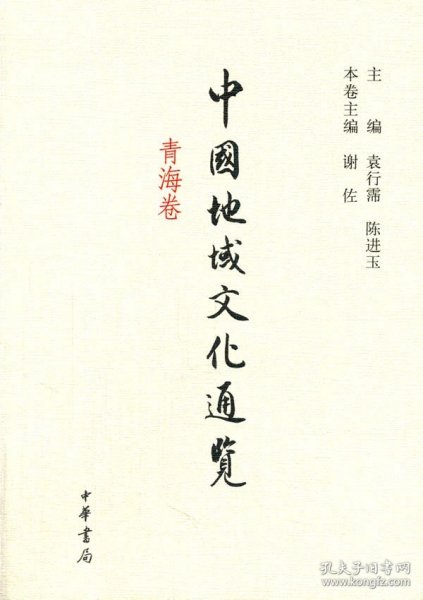 主编 袁行霈 陈进玉
本卷主编 谢佐
中國地域文化通覽
青海卷
中華書局
孔夫子旧书网
www.kongfz.com